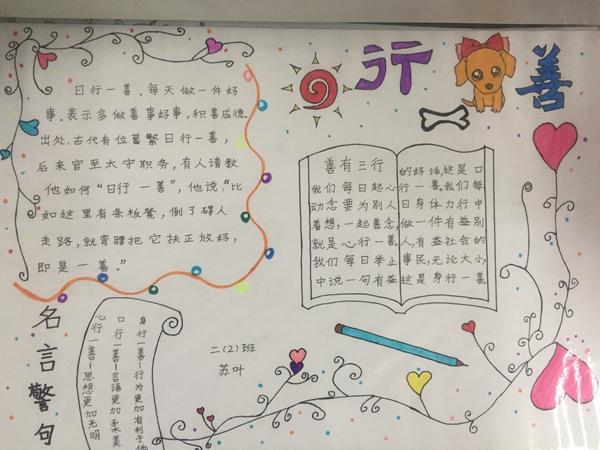 行善
日行一善,每天做一件好
事.表示多做善事好事,积善成德.
出处:古代有位葛繁日行一善,
后来官至太守职务,有人请教
他如何“日行一善”,他说“比
如这里有条板凳,倒了碍人
走路,就弯腰把它扶正放好,
即是一善。”
善有三行
我们每日起心
动念要为别人
着想,一起善念,
就是心行一善,
我们每日举止
中说一句有益
的好话,这是口
行一善。我们每
日身体力行中
做一件有益别
人,有益社会的
事民,无论大小,
这是身行一善
名言警句
身行一善-行为更加有利于他
口行一善-言语更加柔美
心行一善-思想更加光明
二(2)班
苏叶